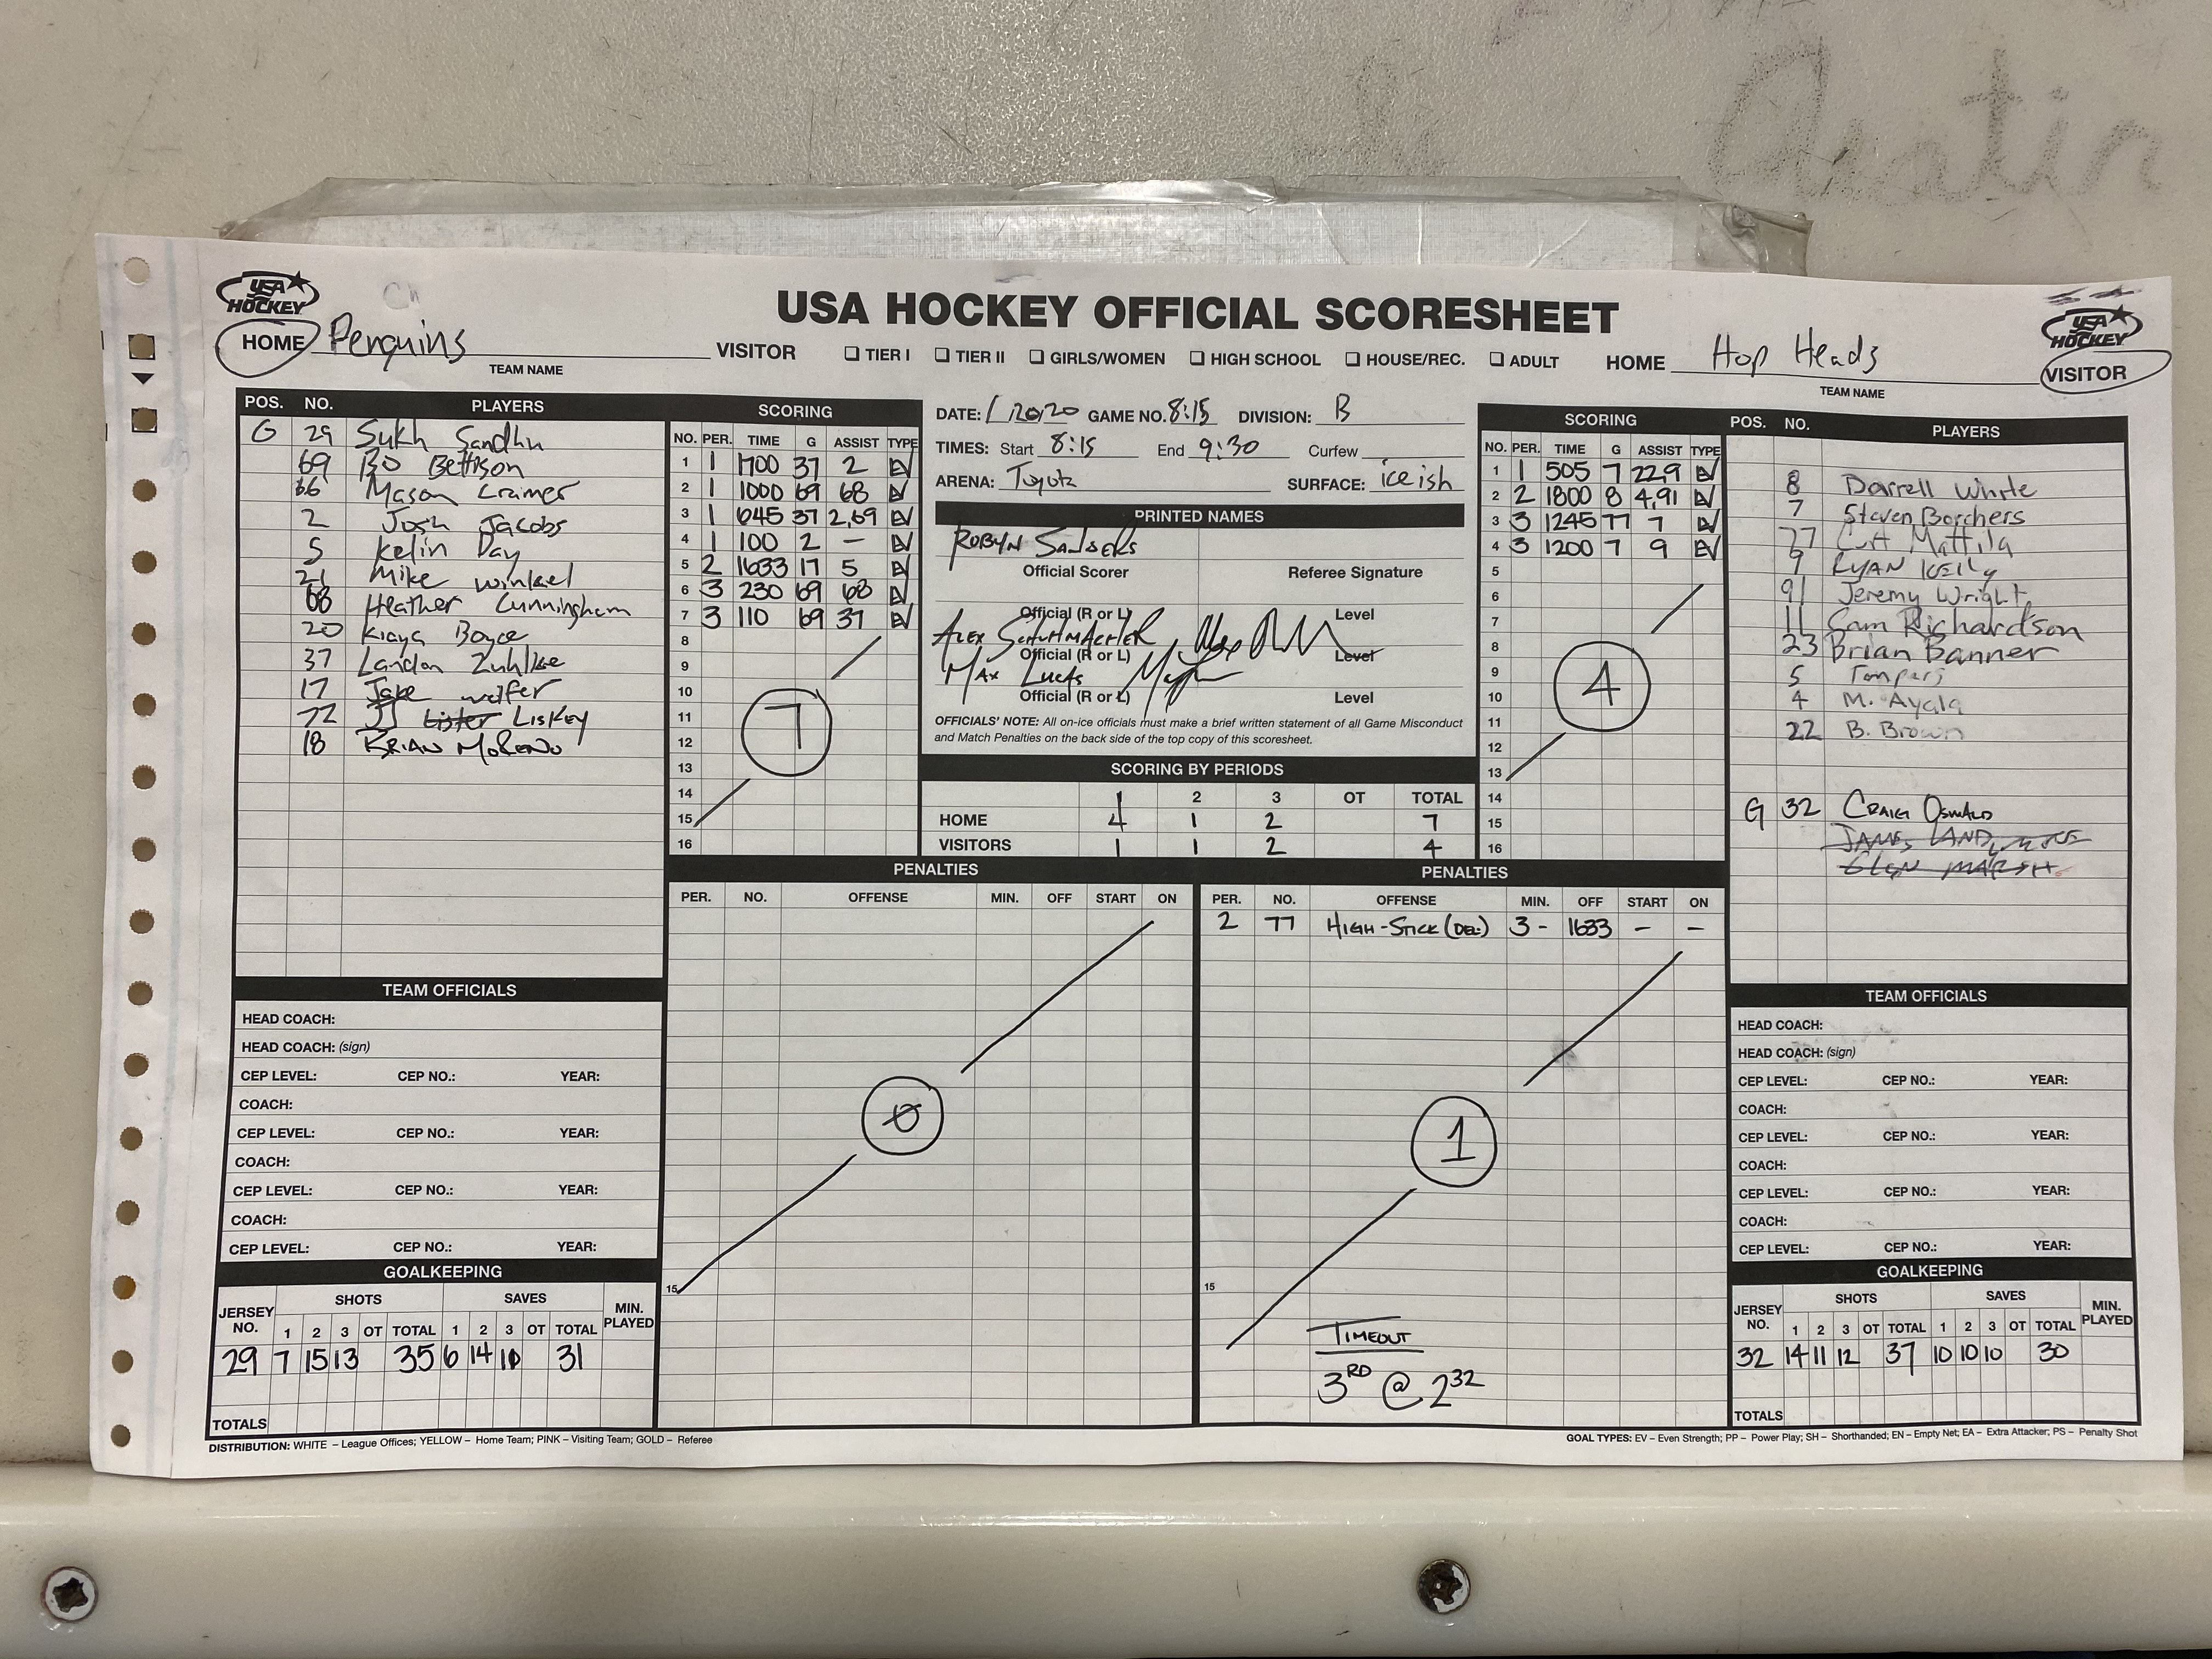 Austin
Ch
USA HOCKEY
USA HOCKEY OFFICIAL SCORESHEET
USA HOCKEY
HOME Penguins VISITOR
TEAM NAME
TIER I TIER II GIRLS/WOMEN HIGH SCHOOL HOUSE/REC. ADULT
HOME Hop Heads VISITOR
TEAM NAME
POS. NO. PLAYERS
G 29 Sukh Sandhu
69 Bo Bettison
66 Mason Cramer
2 Josh Jacobs
5 Kelin Day
21 Mike Winkel
68 Heather Cunningham
20 Kiaya Boyce
37 Landon Zuhlke
17 Jake wolfer
72 JJ Lister LISKEY
18 BRIAN MORENO
SCORING
NO. PER. TIME G ASSIST TYPE
1 1 1700 37 2 EV
2 1 1000 69 68 EV
3 1 645 37 2,69 EV
4 1 100 2 — EV
5 2 1633 17 5 EV
6 3 230 69 68 EV
7 3 110 69 37 EV
8
9
10
11
12
13
14
15
16
7
DATE: 1/20/20 GAME NO. 8:15 DIVISION: B
TIMES: Start 8:15 End 9:30 Curfew
ARENA: Toyota SURFACE: iceish
PRINTED NAMES
ROBYN SANDERS
Official Scorer Referee Signature
Official (R or L) Level
ALEX SCHUHMACHER
Official (R or L) Level
MAX LUCAS
Official (R or L) Level
OFFICIALS' NOTE: All on-ice officials must make a brief written statement of all Game Misconduct
and Match Penalties on the back side of the top copy of this scoresheet.
SCORING BY PERIODS
1 2 3 OT TOTAL
HOME 4 1 2 7
VISITORS 1 1 2 4
SCORING
NO. PER. TIME G ASSIST TYPE
1 1 505 7 22,9 EV
2 2 1800 8 4,91 EV
3 3 1245 77 7 EV
4 3 1200 7 9 EV
5
6
7
8
9
10
11
12
13
14
15
16
4
POS. NO. PLAYERS
8 Darrell White
7 Steven Borchers
77 Curt Mattila
9 RYAN KEILY
91 Jeremy Wright
11 Cam Richardson
23 Brian Banner
5 Tompers
4 M. Ayala
22 B. Brown
G 32 CRAIG OSWALD
JAMES
GLEN MARSH
PENALTIES
PER. NO. OFFENSE MIN. OFF START ON
0
15
PENALTIES
PER. NO. OFFENSE MIN. OFF START ON
2 77 HIGH-STICK (DEL) 3- 1633 — —
1
15
TIMEOUT
3RD @ 232
TEAM OFFICIALS
HEAD COACH:
HEAD COACH: (sign)
CEP LEVEL: CEP NO.: YEAR:
COACH:
CEP LEVEL: CEP NO.: YEAR:
COACH:
CEP LEVEL: CEP NO.: YEAR:
COACH:
CEP LEVEL: CEP NO.: YEAR:
GOALKEEPING
JERSEY NO. SHOTS SAVES MIN. PLAYED
1 2 3 OT TOTAL 1 2 3 OT TOTAL
29 7 15 13 35 6 14 31
TOTALS
TEAM OFFICIALS
HEAD COACH:
HEAD COACH: (sign)
CEP LEVEL: CEP NO.: YEAR:
COACH:
CEP LEVEL: CEP NO.: YEAR:
COACH:
CEP LEVEL: CEP NO.: YEAR:
COACH:
CEP LEVEL: CEP NO.: YEAR:
GOALKEEPING
JERSEY NO. SHOTS SAVES MIN. PLAYED
1 2 3 OT TOTAL 1 2 3 OT TOTAL
32 14 11 12 37 10 10 10 30
TOTALS
DISTRIBUTION: WHITE – League Offices; YELLOW – Home Team; PINK – Visiting Team; GOLD – Referee
GOAL TYPES: EV – Even Strength; PP – Power Play; SH – Shorthanded; EN – Empty Net; EA – Extra Attacker; PS – Penalty Shot